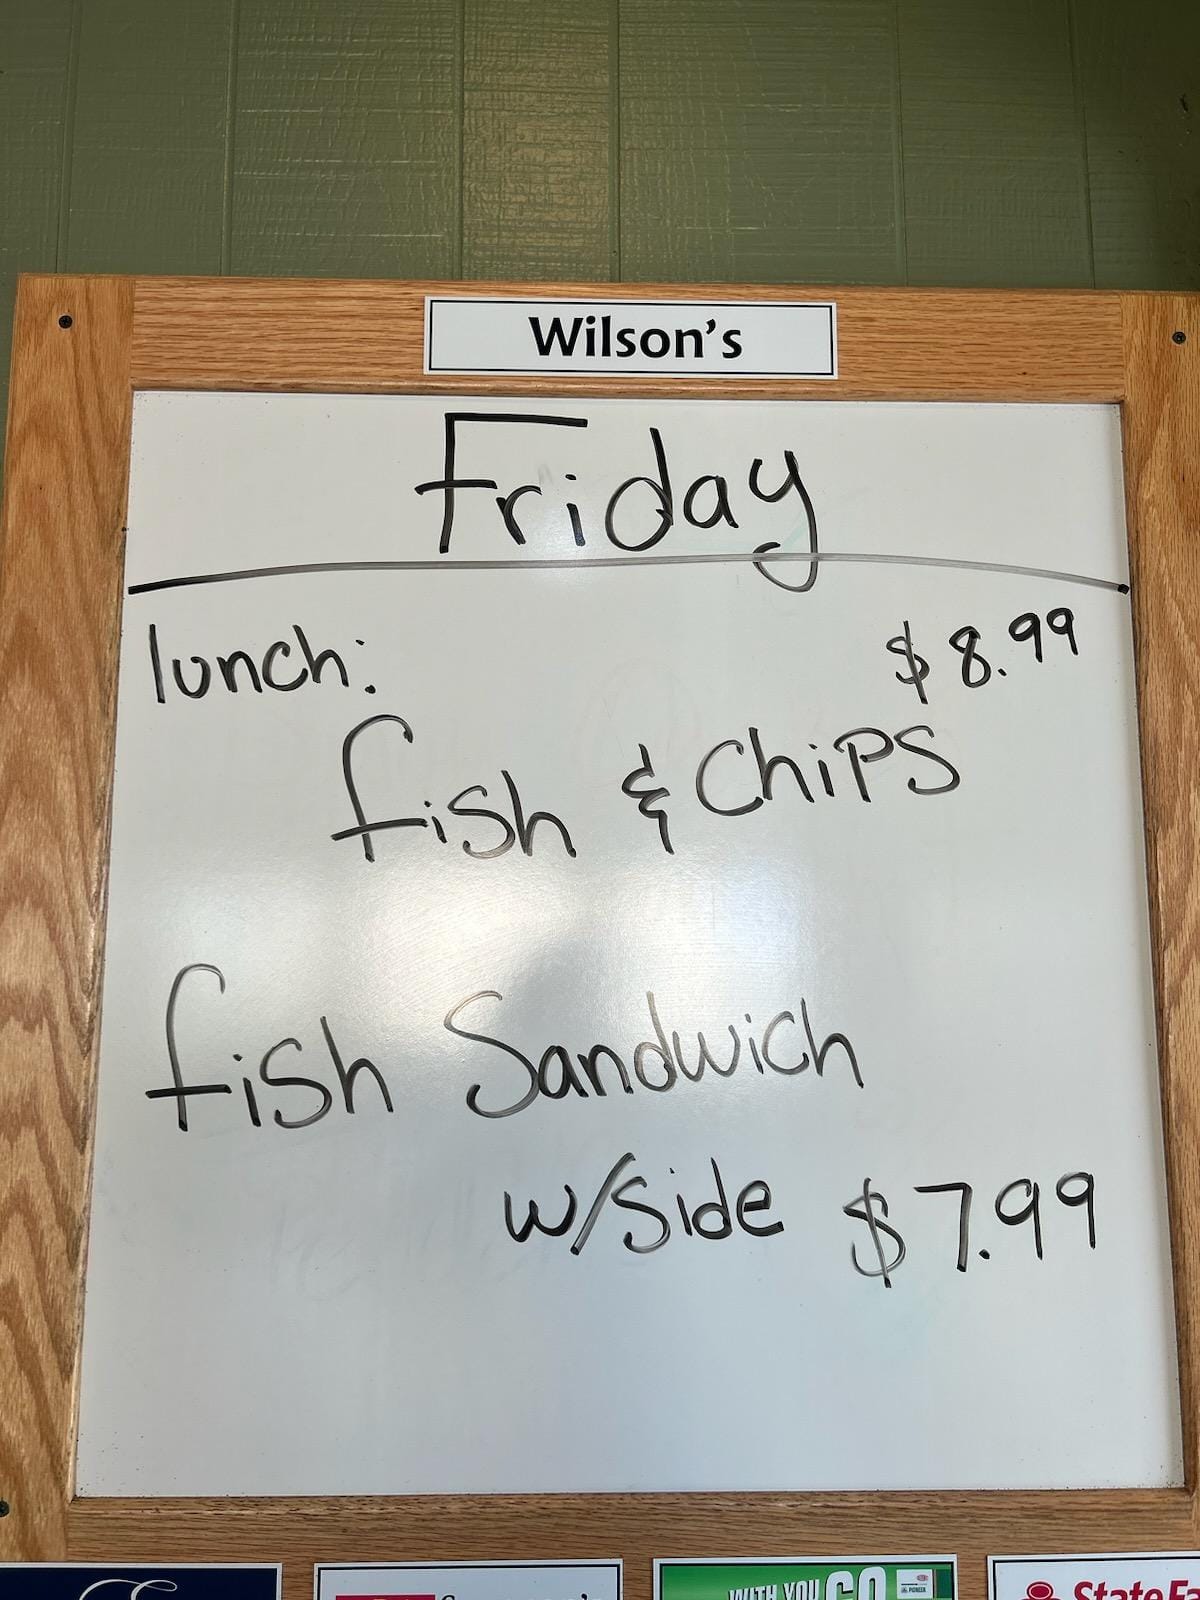 Wilson's
Friday
lunch: $8.99
fish & Chips
fish Sandwich
w/side $7.99
WITH YOU GO
PIONEER
State Fa